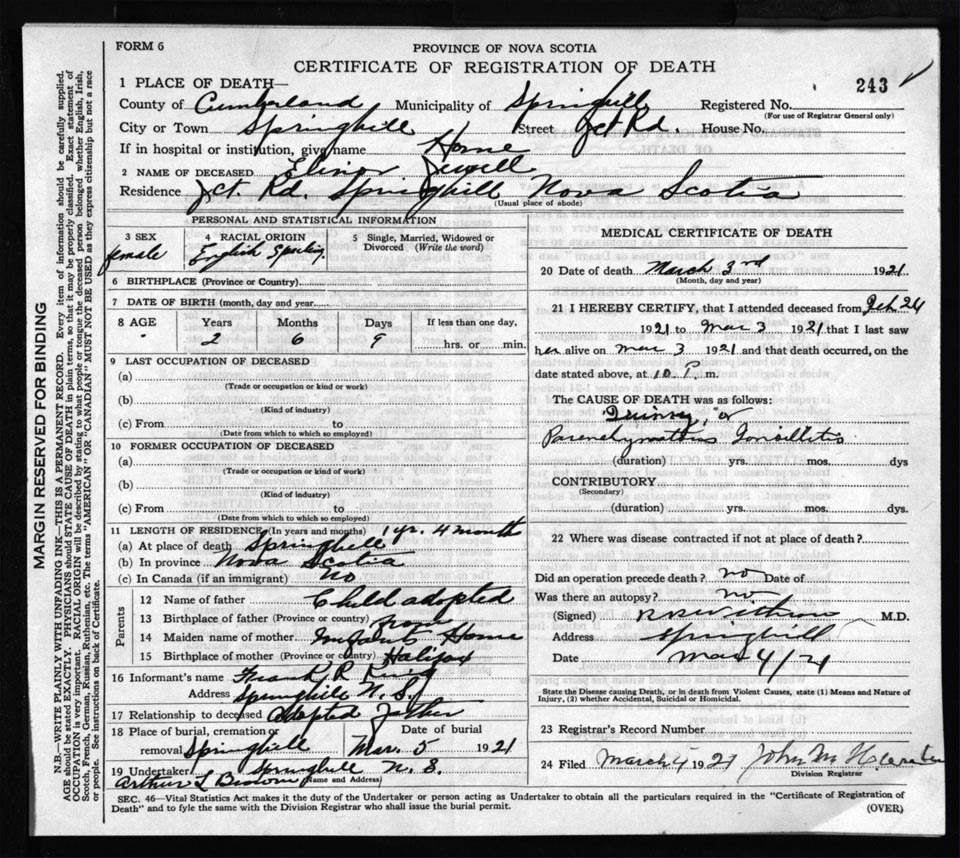 FORM 6
PROVINCE OF NOVA SCOTIA
CERTIFICATE OF REGISTRATION OF DEATH
243
1 PLACE OF DEATH—
County of Cumberland Municipality of Springhill Registered No.
(For use of Registrar General only)
City or Town Springhill Street Jct Rd. House No.
If in hospital or institution, give name Home
2 NAME OF DECEASED Elinor Jewell
Residence Jct. Rd. Springhill Nova Scotia
(Usual place of abode)
PERSONAL AND STATISTICAL INFORMATION
3 SEX 4 RACIAL ORIGIN 5 Single, Married, Widowed or Divorced (Write the word)
female English Speaking
6 BIRTHPLACE (Province or Country)
7 DATE OF BIRTH (month, day and year)
8 AGE Years Months Days If less than one day,
2 6 9 hrs. or min.
9 LAST OCCUPATION OF DECEASED
(a)
(Trade or occupation or kind or work)
(b)
(Kind of industry)
(c) From to
(Date from which to which so employed)
10 FORMER OCCUPATION OF DECEASED
(a)
(Trade or occupation or kind of work)
(b)
(Kind of industry)
(c) From to
(Date from which to which so employed)
11 LENGTH OF RESIDENCE (In years and months) 1 yr. 4 month
(a) At place of death Springhill
(b) In province Nova Scotia
(c) In Canada (if an immigrant) No
Parents
12 Name of father Child adopted
13 Birthplace of father (Province or country) from
14 Maiden name of mother Infants Home
15 Birthplace of mother (Province or country) Halifax
16 Informant's name Frank R
Address Springhill N. S.
17 Relationship to deceased Adopted Father
18 Place of burial, cremation or removal Springhill Date of burial Mar. 5 1921
19 Undertaker Springhill N. S.
Arthur L Brown (Name and Address)
MEDICAL CERTIFICATE OF DEATH
20 Date of death March 3rd 1921
(Month, day and year)
21 I HEREBY CERTIFY, that I attended deceased from Feb 24
1921 to Mar 3 1921 that I last saw
her alive on Mar 3 1921 and that death occurred, on the
date stated above, at 10 P. m.
The CAUSE OF DEATH was as follows:
"Quinsy" or
Parenchymatous Tonsillitis
(duration) yrs. mos. dys
CONTRIBUTORY
(Secondary)
(duration) yrs. mos. dys.
22 Where was disease contracted if not at place of death?
Did an operation precede death? no Date of
Was there an autopsy? no
(Signed) M.D.
Address Springhill
Date Mar 4/21
State the Disease causing Death, or in death from Violent Causes, state (1) Means and Nature of
Injury, (2) whether Accidental, Suicidal or Homicidal.
23 Registrar's Record Number
24 Filed March 4 1921 John M
Division Registrar
SEC. 46—Vital Statistics Act makes it the duty of the Undertaker or person acting as Undertaker to obtain all the particulars required in the "Certificate of Registration of
Death" and to fyle the same with the Division Registrar who shall issue the burial permit. (OVER)
MARGIN RESERVED FOR BINDING
N.B.—WRITE PLAINLY WITH UNFADING INK—THIS IS A PERMANENT RECORD. Every item of information should be carefully supplied.
AGE should be stated EXACTLY. PHYSICIANS should STATE CAUSE OF DEATH in plain terms, so that it may be properly classified. Exact statement of
OCCUPATION is very important. RACIAL ORIGIN will be described by stating to what people or tongue the deceased person belonged whether English, Irish,
Scotch, French, German, Russian, Ruthenian, etc. The terms "AMERICAN" OR "CANADIAN" MUST NOT BE USED as they express citizenship but not a race
or people. See instructions on back of Certificate.